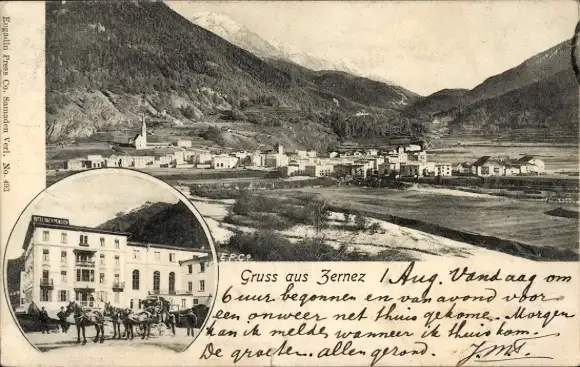 Engadin Press Co. Samaden Verl. No. 493
E.P.Co
Gruss aus Zernez 1 Aug. Vandaag om
6 uur begonnen en van avond voor
een onweer net thuis gekome. Morgen
kan ik melde wanneer ik thuis kom.
De groeten. allen gerond.